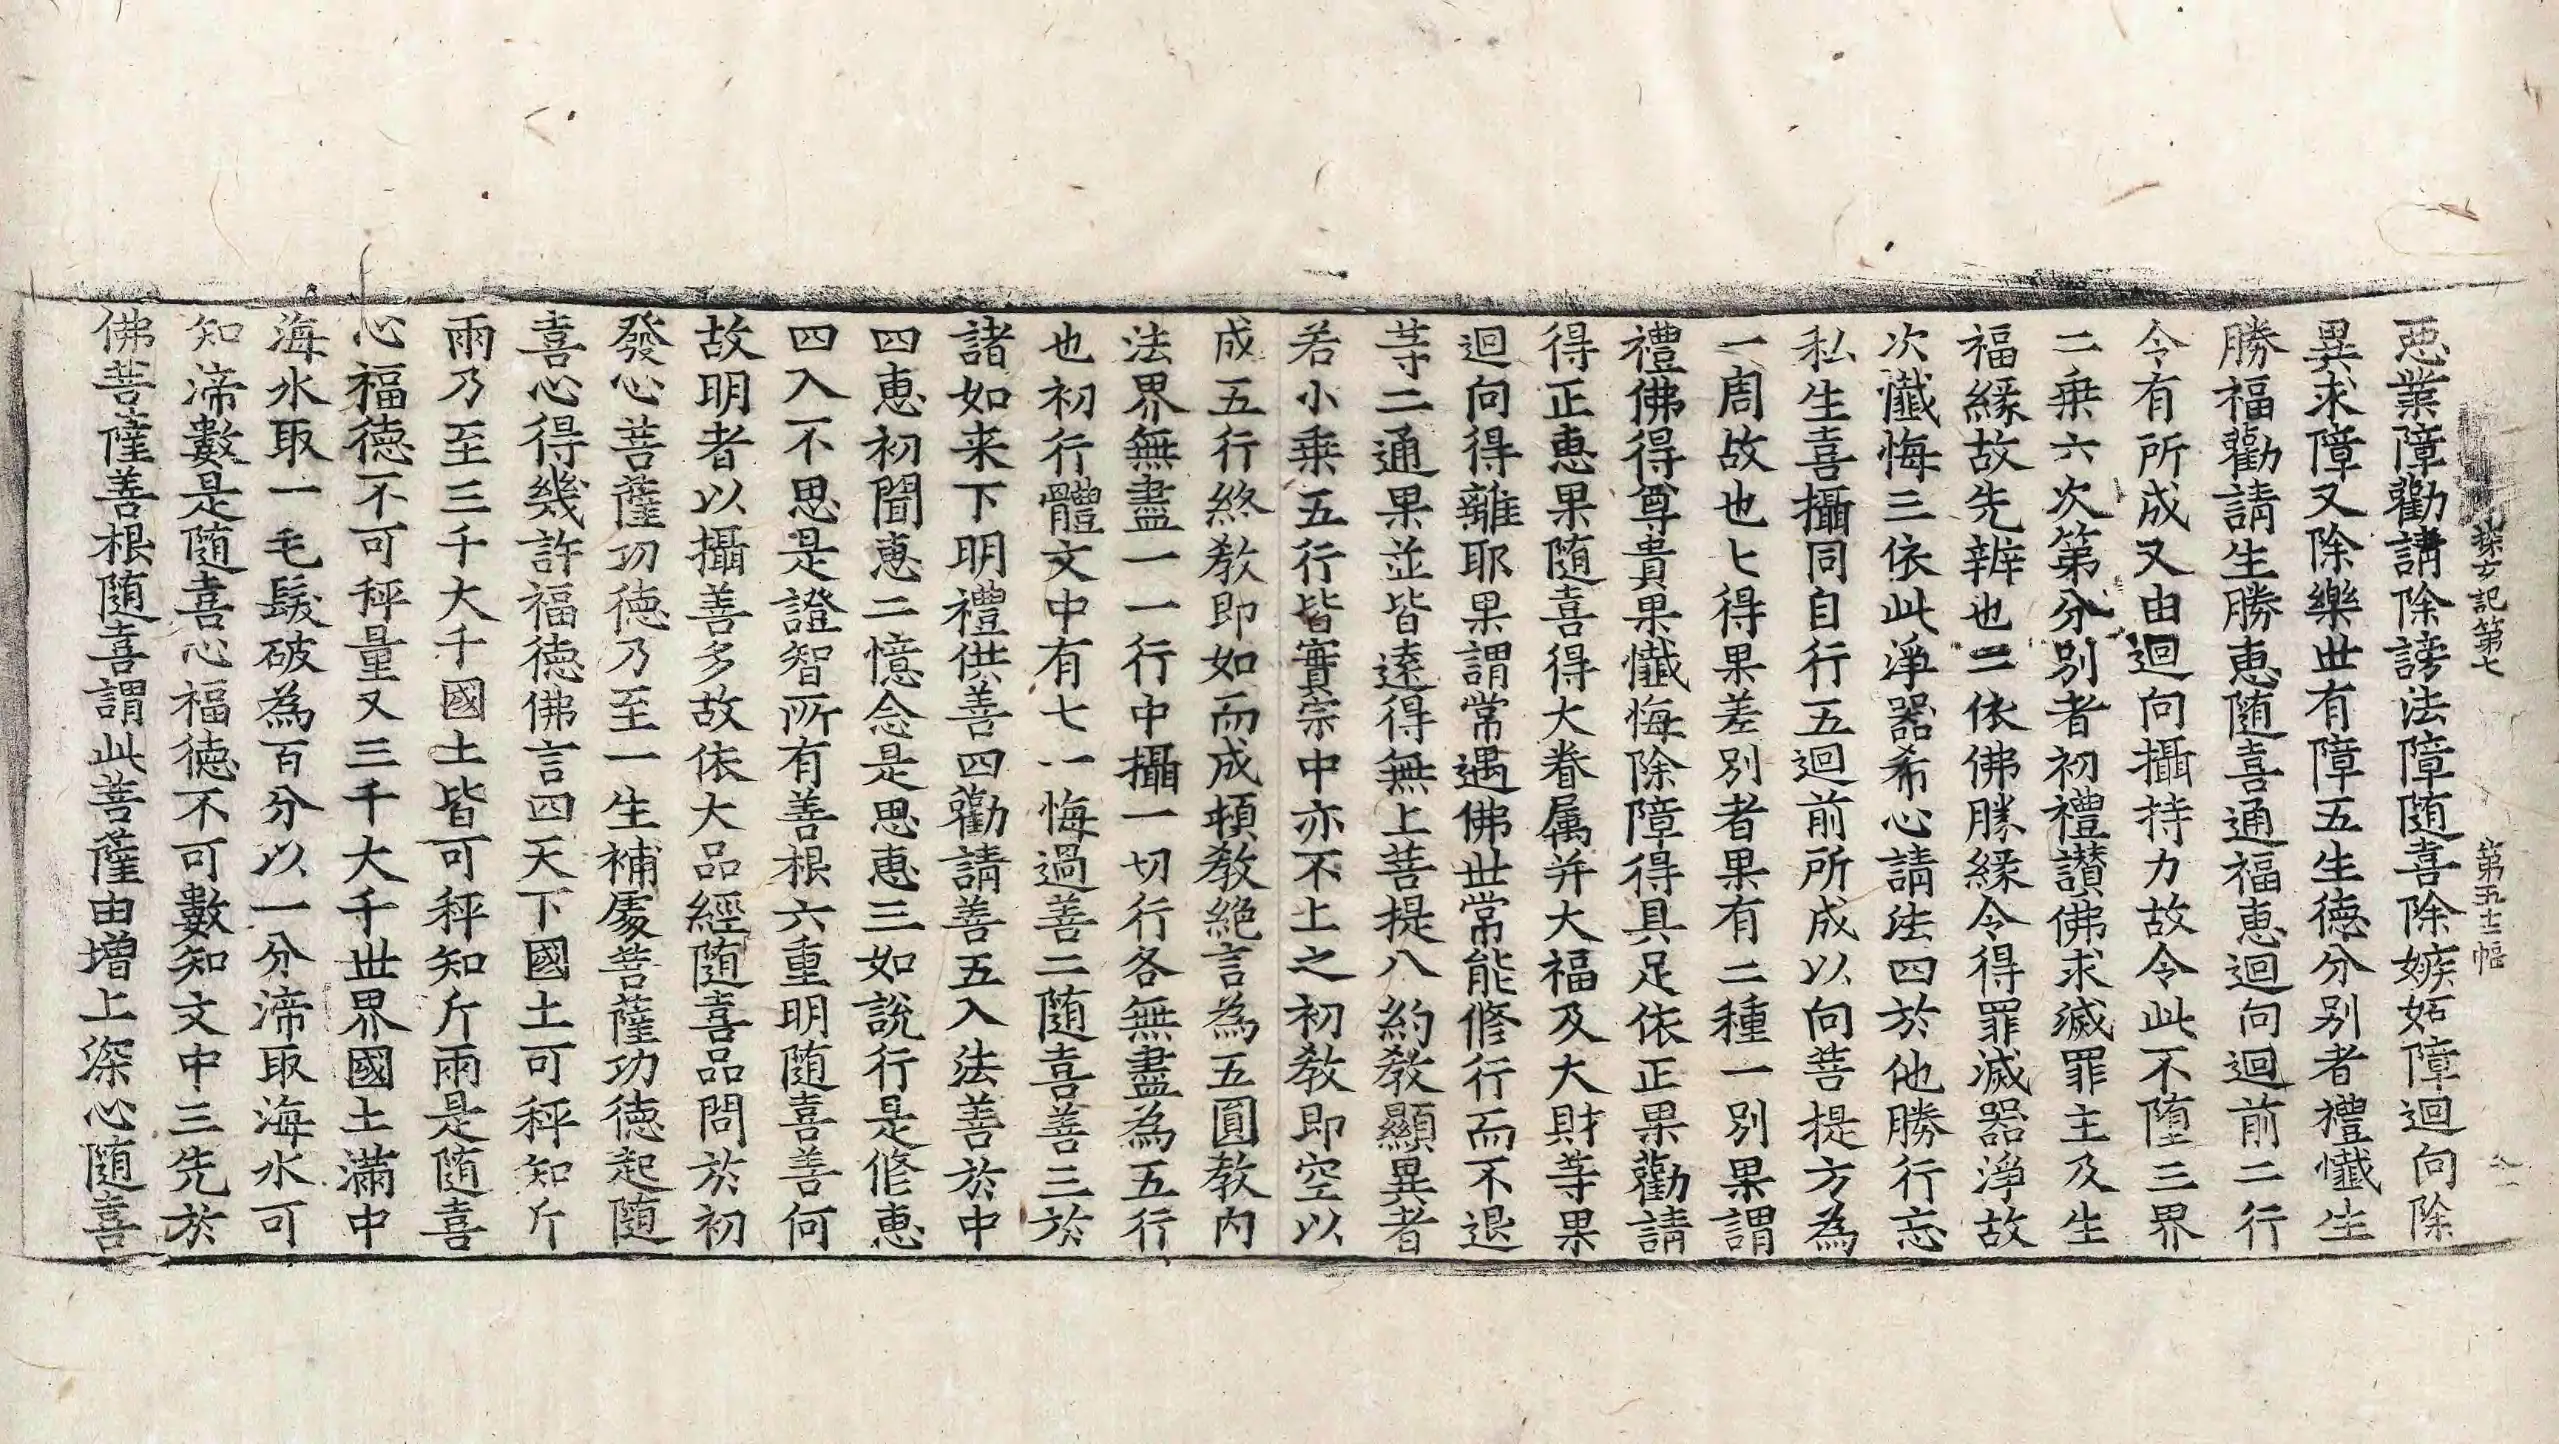 探玄記第七　第五十二幅
惡業障勸請除謗法障隨喜除嫉妬障迴向除
異求障又除樂世有障五生德分別者禮懺生
勝福勸請生勝惠隨喜通福惠迴向迴前二行
令有所成又由迴向攝持力故令此不墮三界
二乘六次第分別者初禮讃佛求滅罪主及生
福緣故先辨也二依佛勝緣令得罪滅器淨故
次懺悔三依此淨器希心請法四於他勝行忘
私生喜攝同自行五迴前所成以向菩提方為
一周故也七得果差別者果有二種一別果謂
禮佛得尊貴果懺悔除障得具足依正果勸請
得正惠果隨喜得大眷属并大福及大財等果
迴向得離耶果謂常遇佛世常能脩行而不退
等二通果並皆遠得無上菩提八約教顯異者
若小乘五行皆實宗中亦不上之初教即空以
成五行終教即如而成頓教絶言為五圓教內
法界無盡一一行中攝一切行各無盡為五行
也初行體文中有七一悔過善二隨喜善三於
諸如来下明禮供善四勸請善五入法善於中
四惠初聞惠二憶念是思惠三如說行是修惠
四入不思是證智所有善根六重明隨喜善何
故明者以攝善多故依大品經隨喜品問於初
發心菩薩功德乃至一生補處菩薩功德起隨
喜心得幾許福德佛言四天下國土可秤知斤
兩乃至三千大千國土皆可秤知斤兩是隨喜
心福德不可秤量又三千大千世界國土滿中
海水取一毛髮破為百分以一分渧取海水可
知渧數是隨喜心福德不可數知文中三先於
佛菩薩善根隨喜謂此菩薩由增上深心隨喜